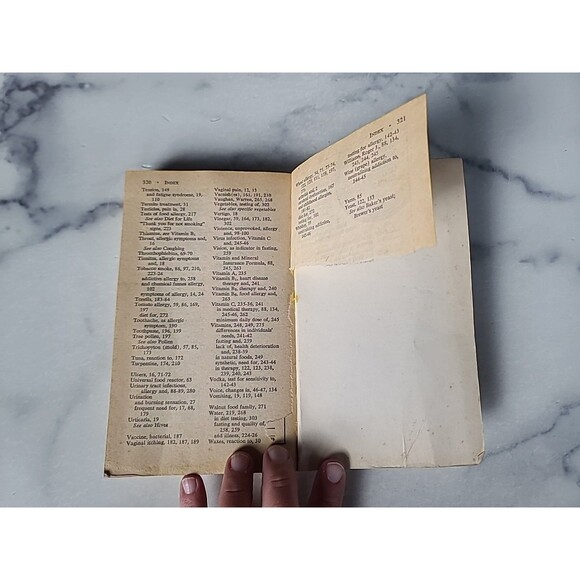 320 • INDEX
Tension, 249
and fatigue syndrome, 19,
110
Testicles, pain in, 28
Tests of food allergy, 217
See also Diet for Life
"Thank you for not smoking"
signs, 223
Thiamine, see Vitamin B₁
Throat, allergic symptoms and, 16
See also Coughing
Thrombophlebitis, 69-70
Tinnitus, allergic symptoms
and, 18
Tobacco smoke, 86, 97, 210,
223-24
addictive allergy to, 258
and chemical fumes allergy,
202
symptoms of allergy, 14, 24
Tomato allergy, 59, 86, 169,
197
diet for, 272
Toothache, as allergic
symptom, 199
Toothpaste, 194, 199
Tree pollen, 197
See also Pollen
Trichophyton (mold), 57, 85,
173
Tuna, reaction to, 172
Turpentine, 174, 210
Ulcers, 16, 71-72
Universal food reactor, 63
Urinary tract infections,
allergy and, 88-89, 280
Urination
and burning sensation, 27
frequent need for, 17, 68,
179
Urticaria, 19
See also Hives
Vaccine, bacterial, 187
Vaginal itching, 182, 187, 189
Vaginal pain, 12, 13
Varnish(es), 161, 191, 210
Vaughan, Warren, 265, 268
Vegetables, testing of, 302
See also specific vegetables
Vertigo, 18
Vinegar, 59, 164, 173, 182,
302
Violence, unprovoked, allergy
and, 98-100
Virus infection, Vitamin C
and, 245-46
Vision, as indicator in fasting,
229
Vitamin and Mineral
Insurance Formula, 88,
241, 263
Vitamin A, 235
Vitamin B₁, heart disease
therapy and, 241
Vitamin B₆, therapy and, 240
Vitamin B₆, food allergy and,
263
Vitamin C, 235-36, 241
in medical therapy, 88, 134,
245-46, 262
minimum daily dose of, 245
Vitamins, 248, 249, 275
differences in individuals'
needs, 241-42
fasting and, 259
lack of, health deterioration
and, 238-39
in natural foods, 249
synthetic, need for, 243-44
in therapy, 122, 123, 238,
239, 240, 243
Vodka, test for sensitivity to,
142-43
Voice, changes in, 46-47, 134
Vomiting, 19, 119, 148
Walnut food family, 271
Water, 219, 268
in diet testing, 303
fasting and quality of,
258, 259
and illness, 224-26
Waxes, reaction to, 30
INDEX • 321
testing for allergy, 142-43
Williams, Roger J., 88, 134,
241, 244, 263
Wine (grape) allergy,
Yams, 87
Yeast, 122, 133
See also Baker's yeast;
Brewer's yeast